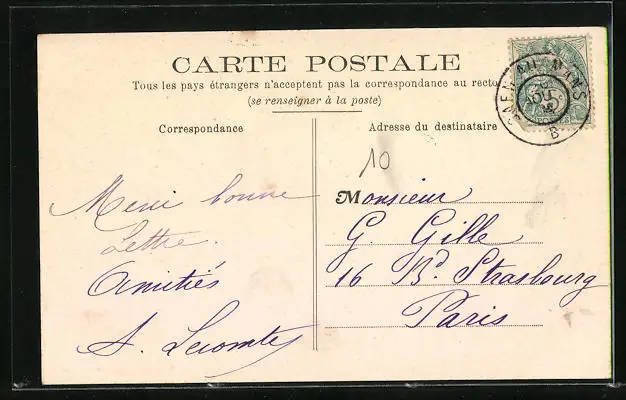 CARTE POSTALE
Tous les pays étrangers n'acceptent pas la correspondance au recto
(se renseigner à la poste)
Correspondance
Adresse du destinataire
10
Merci bonne
Lettre.
Amitiés
A. Lecomte
Monsieur
G. Gille
16 Bd. Strasbourg
Paris
B